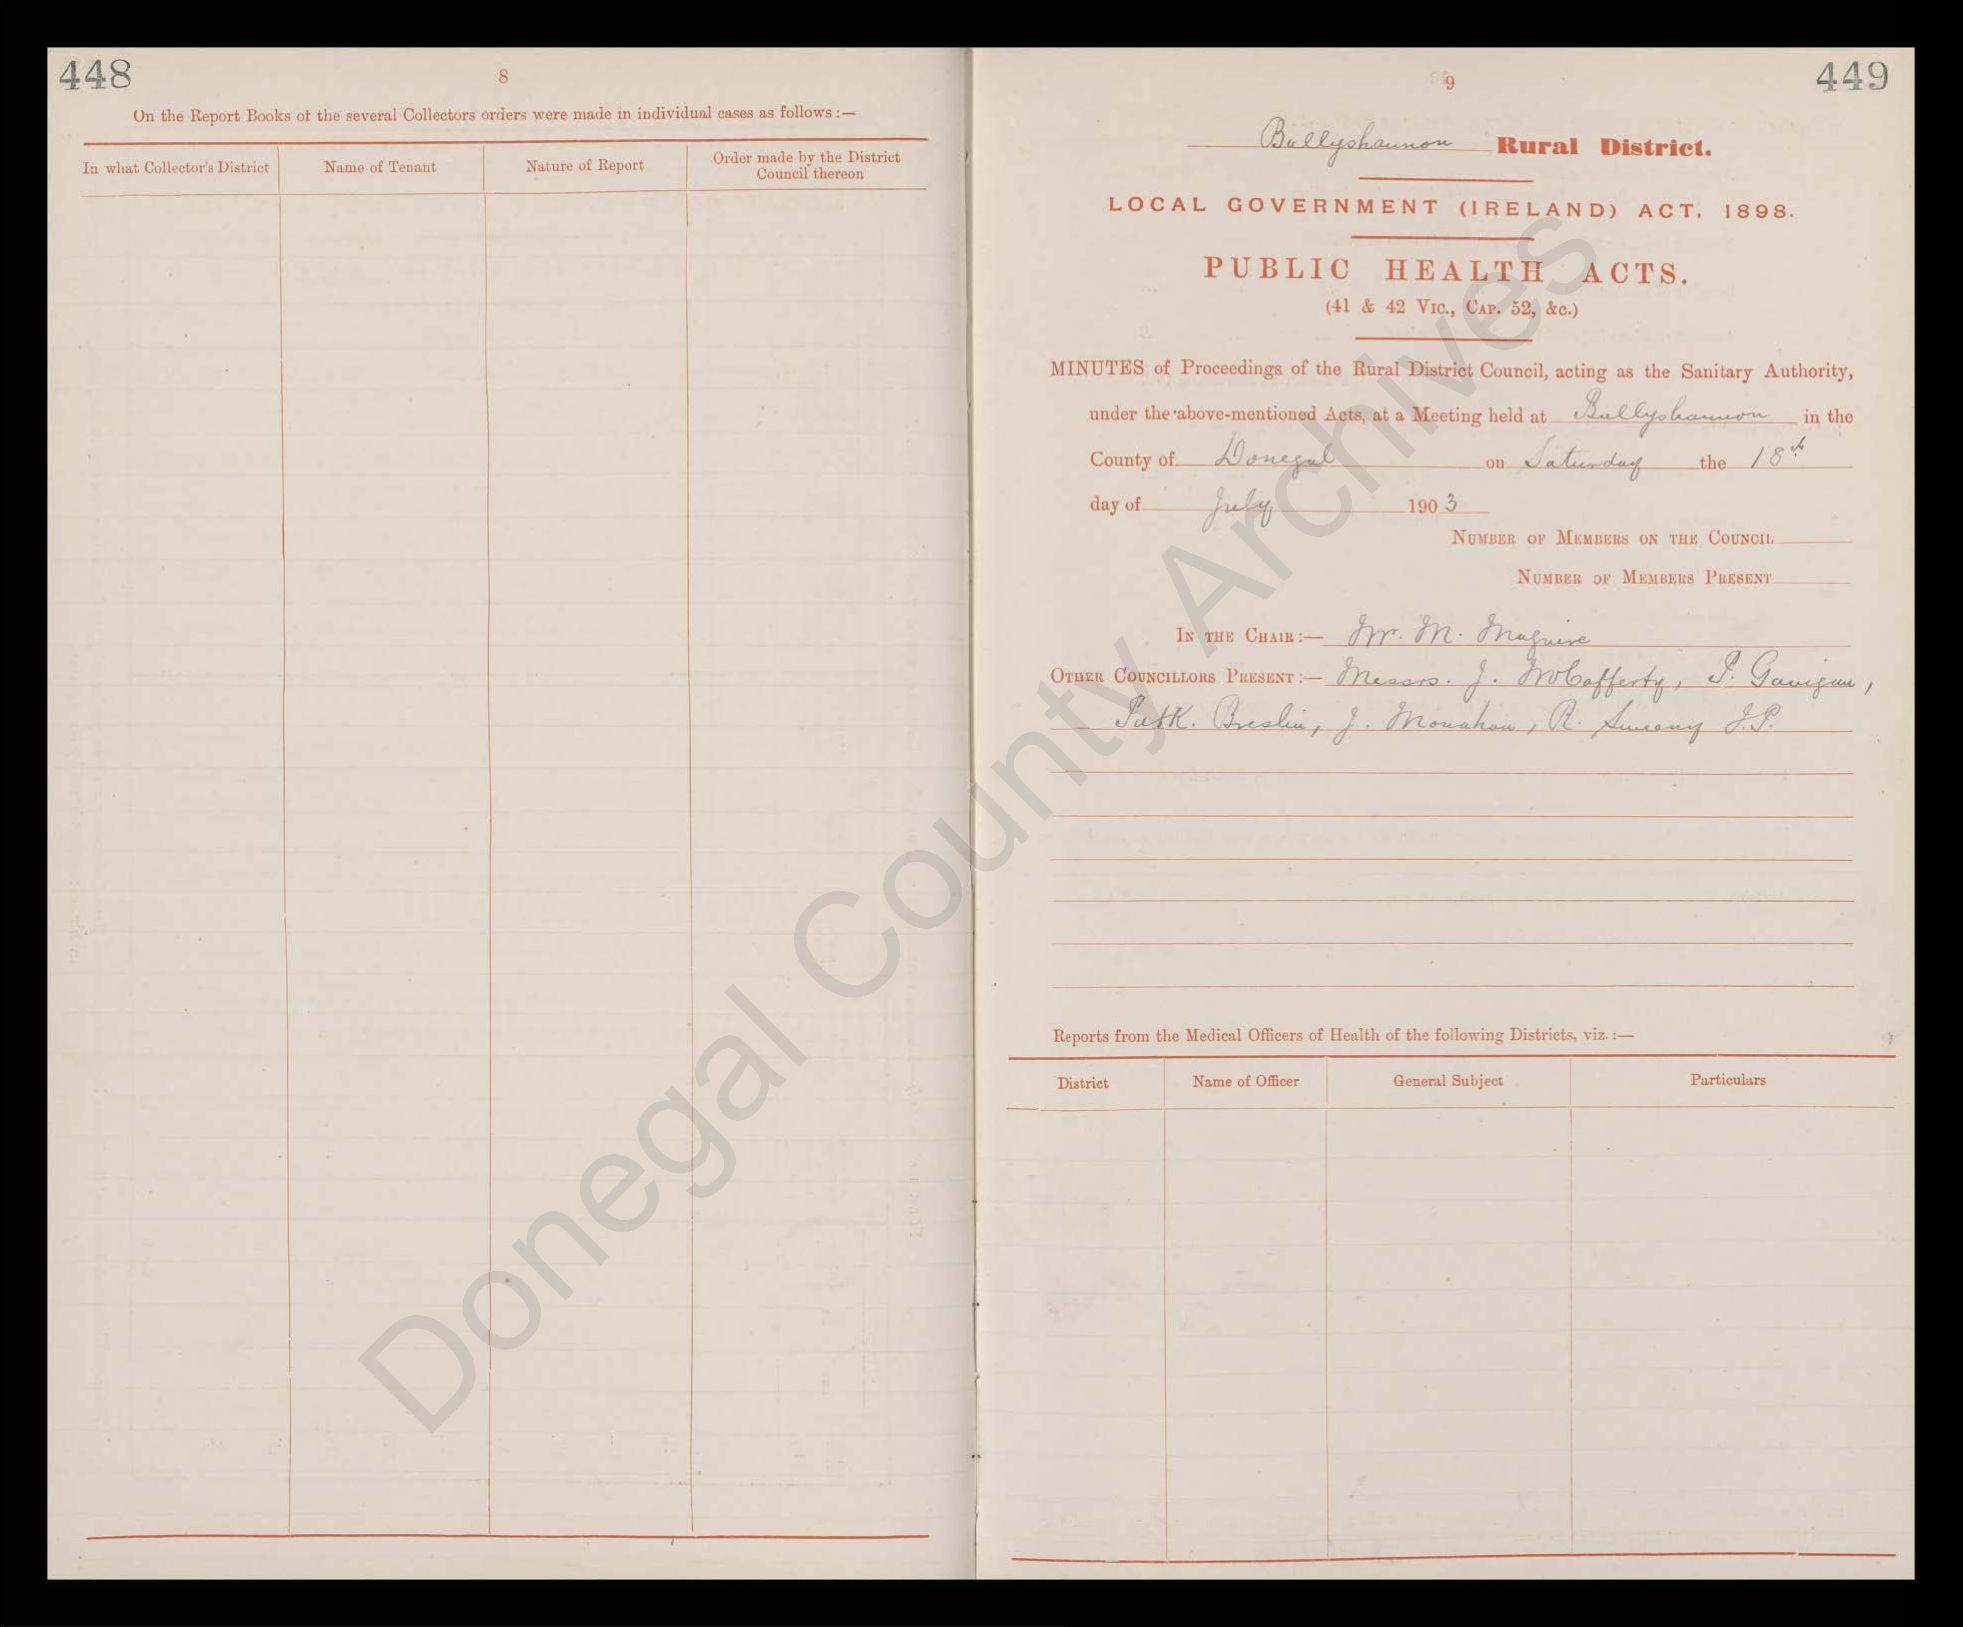 448
8
On the Report Books of the several Collectors orders were made in individual cases as follows :—
In what Collector's District
Name of Tenant
Nature of Report
Order made by the District
Council thereon
449
9
Ballyshannon Rural District.
LOCAL GOVERNMENT (IRELAND) ACT, 1898.
PUBLIC HEALTH ACTS.
(41 & 42 Vic., Cap. 52, &c.)
MINUTES of Proceedings of the Rural District Council, acting as the Sanitary Authority,
under the above-mentioned Acts, at a Meeting held at Ballyshannon in the
County of Donegal on Saturday the 18th
day of July 1903
Number of Members on the Council
Number of Members Present
In the Chair :— Mr. M. Maguire
Other Councillors Present :— Messrs. J. McCafferty, P. Gavigan,
Patk. Breslin, J. Monahan, R. Sweeny J.P.
Reports from the Medical Officers of Health of the following Districts, viz. :—
District
Name of Officer
General Subject
Particulars
Donegal County Archives